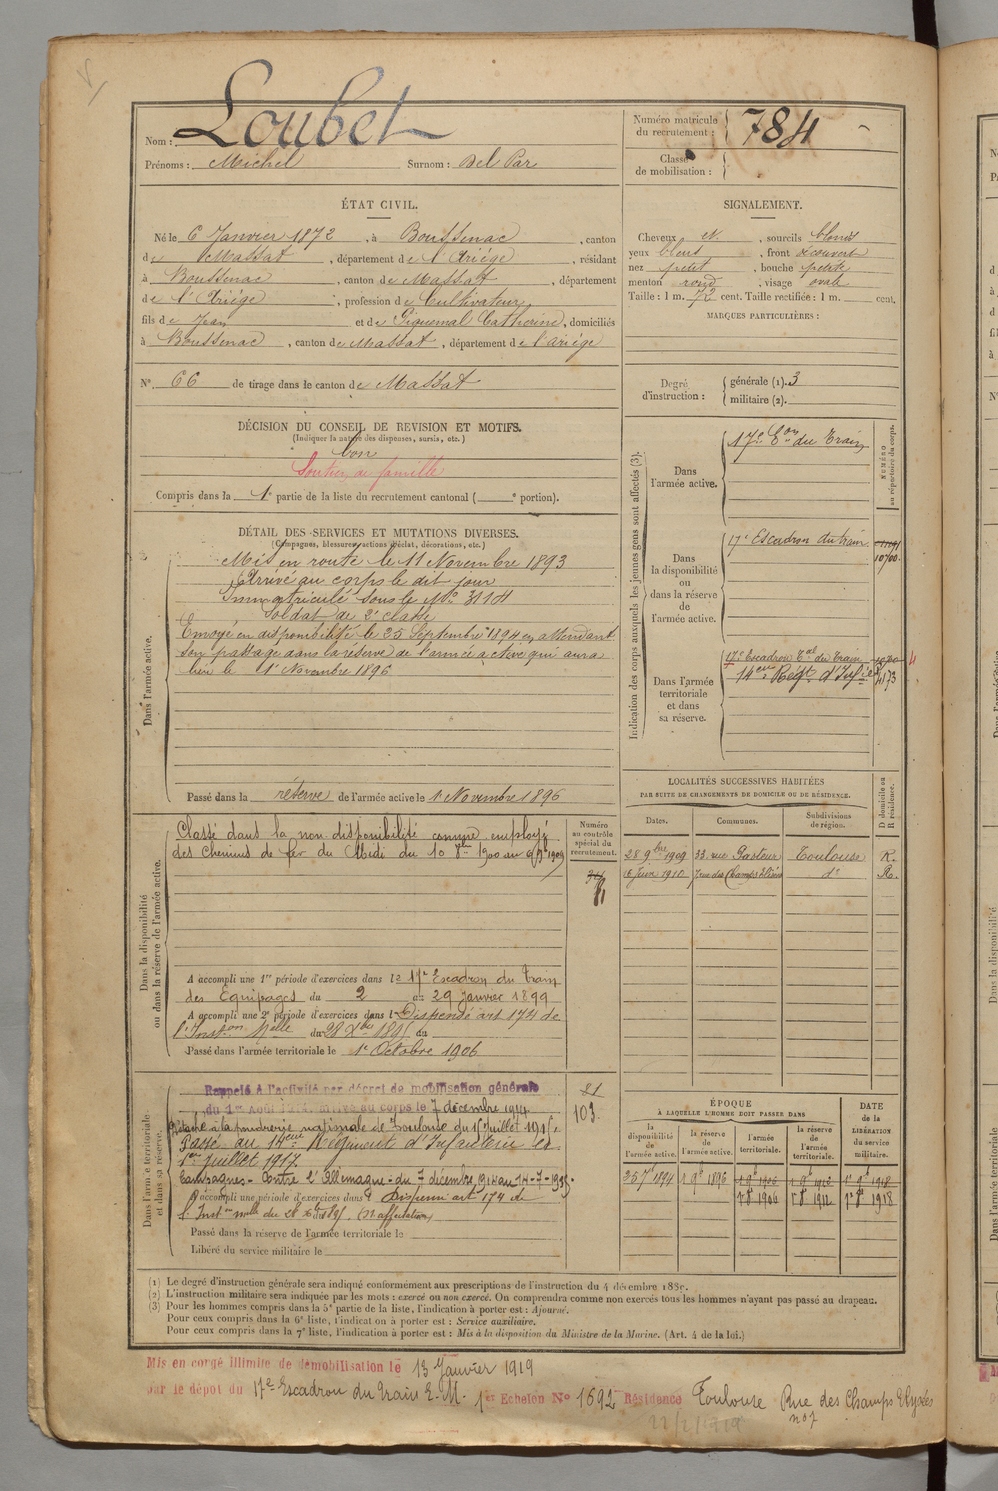 Nom : Loubet
Prénoms : Michel Surnom : Del Par
Numéro matricule
du recrutement : 784
Classe
de mobilisation :
ÉTAT CIVIL.
Né le 6 Janvier 1872, à Boussenac, canton
de Massat, département de l'Ariège, résidant
à Boussenac, canton de Massat, département
de l'Ariège, profession de Cultivateur
fils de Jean et de Piquemal Catherine, domiciliés
à Boussenac, canton de Massat, département de l'ariége
N° 66 de tirage dans le canton de Massat
SIGNALEMENT.
Cheveux et, sourcils blonds
yeux bleus, front découvert
nez petit, bouche petite
menton rond, visage ovale
Taille : 1 m. 72 cent. Taille rectifiée : 1 m. cent.
MARQUES PARTICULIÈRES :
Degré
d'instruction :
générale (1). 3
militaire (2).
DÉCISION DU CONSEIL DE REVISION ET MOTIFS.
(Indiquer la nature des dispenses, sursis, etc.)
bon
Soutien de famille
Compris dans la 1e partie de la liste du recrutement cantonal ( e portion).
DÉTAIL DES SERVICES ET MUTATIONS DIVERSES.
(Campagnes, blessures, actions d'éclat, décorations, etc.)
Dans l'armée active.
Mis en route le 11 Novembre 1893
Arrivé au corps le dit jour
Immatriculé sous le No 3114
Soldat de 2e classe
Envoyé en disponibilité le 25 Septembre 1894 en attendant
son passage dans la réserve de l'armée active qui aura
lieu le 1er Novembre 1896
Passé dans la réserve de l'armée active le 1 Novembre 1896
Indication des corps auxquels les jeunes gens sont affectés (3).
NUMÉRO
au répertoire du corps.
Dans
l'armée active.
17e Eon du Train
Dans
la disponibilité
ou
dans la réserve
de
l'armée active.
17e Escadron du train
10700
Dans l'armée
territoriale
et dans
sa réserve.
17e Escadron Eal du Train 10700
14eme Regt d'Infie 4173
LOCALITÉS SUCCESSIVES HABITÉES
PAR SUITE DE CHANGEMENTS DE DOMICILE OU DE RÉSIDENCE.
Dates. Communes. Subdivisions
de région.
D domicile ou
R résidence.
28 9bre 1909 33 rue Pasteur Toulouse R.
6 Juin 1910 7 rue des Champs Elisées do R.
Dans la disponibilité
ou dans la réserve de l'armée active.
Numéro
au contrôle
spécial du
recrutement.
Classé dans la non disponibilité comme employé
des Chemins de fer du Midi du 10 8bre 1900 au 6 9bre 1909
A accompli une 1re période d'exercices dans le 17e Escadron du Train
des Equipages du 2 au 29 Janvier 1899
A accompli une 2e période d'exercices dans l Dispensé art 174 de
l'Inston Melle du 28 Xbre 1895 au
Passé dans l'armée territoriale le 1er Octobre 1906
Dans l'armée territoriale
et dans sa réserve.
Rappelé à l'activité par décret de mobilisation générale
du 1er Août 1914. Arrivé au corps le 7 décembre 1914
21
103.
Détaché à la poudrerie nationale de Toulouse du 15 Juillet 1915
Passé au 14eme Régiment d'Infanterie le
1er Juillet 1917.
Campagnes - Contre l'Allemagne - du 7 décembre 1914 au 14-7-1915.
A accompli une période d'exercices dans l Dispensé art 174 de
l'Inston melle du 28 Xbre 1895 (n affectation)
Passé dans la réserve de l'armée territoriale le
Libéré du service militaire le
ÉPOQUE
À LAQUELLE L'HOMME DOIT PASSER DANS
DATE
de la
LIBÉRATION
du service
militaire.
la
disponibilité
de
l'armée active. la
réserve
de
l'armée active. l'armée
territoriale. la
réserve
de l'armée
territoriale.
25 7bre 1894 1 9b 1896 1 9b 1906 1 9b 1912 1r 9b 1918
1r 8b 1906 1r 8b 1912 1r 8b 1918
(1) Le degré d'instruction générale sera indiqué conformément aux prescriptions de l'instruction du 4 décembre 1889.
(2) L'instruction militaire sera indiquée par les mots : exercé ou non exercé. On comprendra comme non exercés tous les hommes n'ayant pas passé au drapeau.
(3) Pour les hommes compris dans la 5e partie de la liste, l'indication à porter est : Ajourné.
Pour ceux compris dans la 6e liste, l'indication à porter est : Service auxiliaire.
Pour ceux compris dans la 7e liste, l'indication à porter est : Mis à la disposition du Ministre de la Marine. (Art. 4 de la loi.)
Mis en congé illimité de démobilisation le 13 Janvier 1919
par le dépôt du 17e Escadron du Train E.M. 1er Echelon No 1692 Résidence Toulouse Rue des Champs Elysées
no 7
22/2/1919